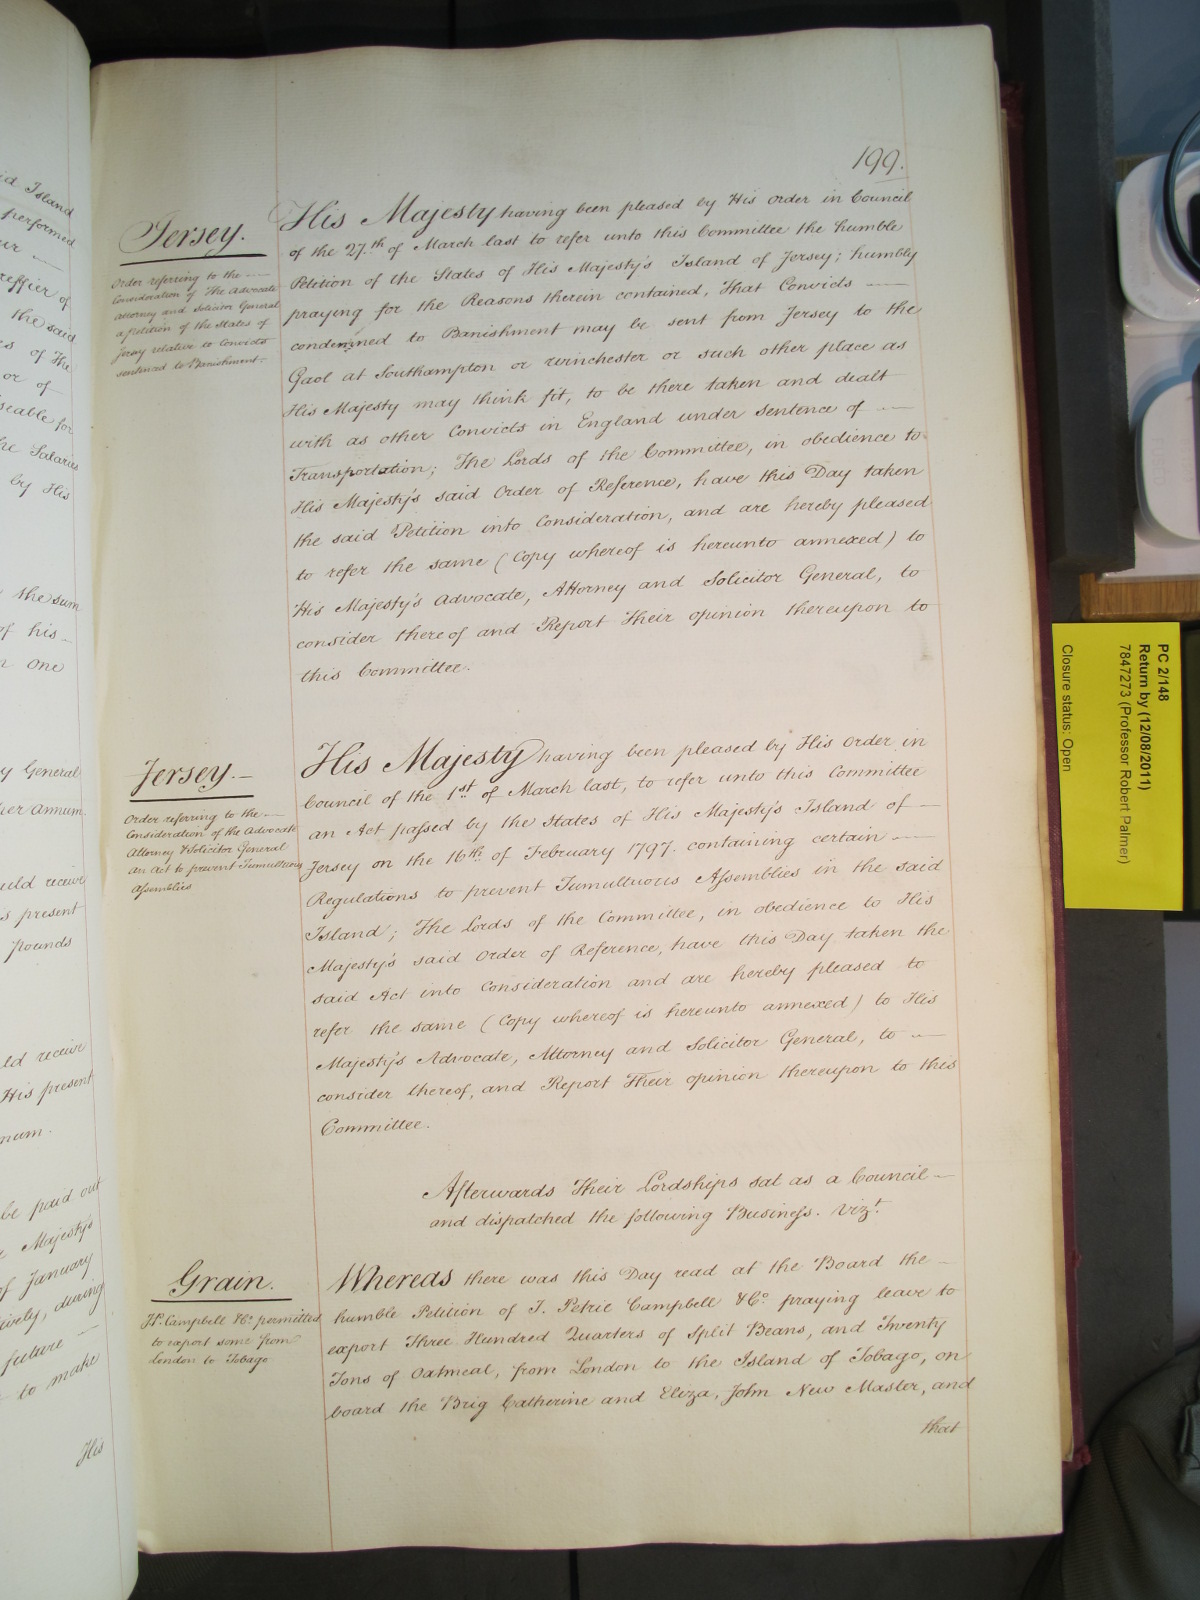 id Island
performed
ur —
reffier of
the said
es of the
or of —
seable for
he Salaries
by His
the sum
of his —
n one
y General
per annum.
uld receive
is present
Pounds
ld receive
His present
num.
be paid out
Majesty's
of January
ively, during
future —
to make
His
199.
Jersey.
Order referring to the —
Consideration of The Advocate
Attorney and Solicitor General
a petition of the States of
Jersey relative to Convicts
sentenced to Banishment.
His Majesty having been pleased by His Order in Council
of the 27.th of March last to refer unto this Committee the humble
Petition of the States of His Majesty's Island of Jersey; humbly
praying for the Reasons therein contained, that Convicts —
condemned to Banishment may be sent from Jersey to the
Gaol at Southampton or Winchester or such other place as
His Majesty may think fit, to be there taken and dealt
with as other Convicts in England under sentence of —
Transportation; The Lords of the Committee, in obedience to
His Majesty's said Order of Reference, have this Day taken
the said Petition into Consideration, and are hereby pleased
to refer the same (Copy whereof is hereunto annexed) to
His Majesty's Advocate, Attorney and Solicitor General, to
consider thereof and Report Their opinion thereupon to
this Committee.
Jersey.—
Order referring to the —
Consideration of the Advocate
Attorney & Solicitor General
an Act to prevent Tumultuous
Assemblies
His Majesty having been pleased by His Order in
Council of the 1.st of March last, to refer unto this Committee
an Act passed by the States of His Majesty's Island of —
Jersey on the 16th of February 1797. containing certain —
Regulations to prevent Tumultuous Assemblies in the said
Island; The Lords of the Committee, in obedience to His
Majesty's said Order of Reference, have this Day taken the
said Act into Consideration and are hereby pleased to
refer the same (Copy whereof is hereunto annexed) to His
Majesty's Advocate, Attorney and Solicitor General, to —
consider thereof, and Report Their opinion thereupon to this
Committee.
Afterwards Their Lordships sat as a Council —
and dispatched the following Business. Vizt.
Grain.
Campbell &Co. permitted
to export some from
London to Tobago
Whereas there was this Day read at the Board the —
humble Petition of J. Petrie Campbell &Co. praying leave to
export Three Hundred Quarters of Split Beans, and Twenty
Tons of Oatmeal, from London to the Island of Tobago, on
board the Brig Catherine and Eliza, John New Master, and
that
PC 2/148
Return by (12/08/2011)
7847273 (Professor Robert Palmer)
Closure status: Open